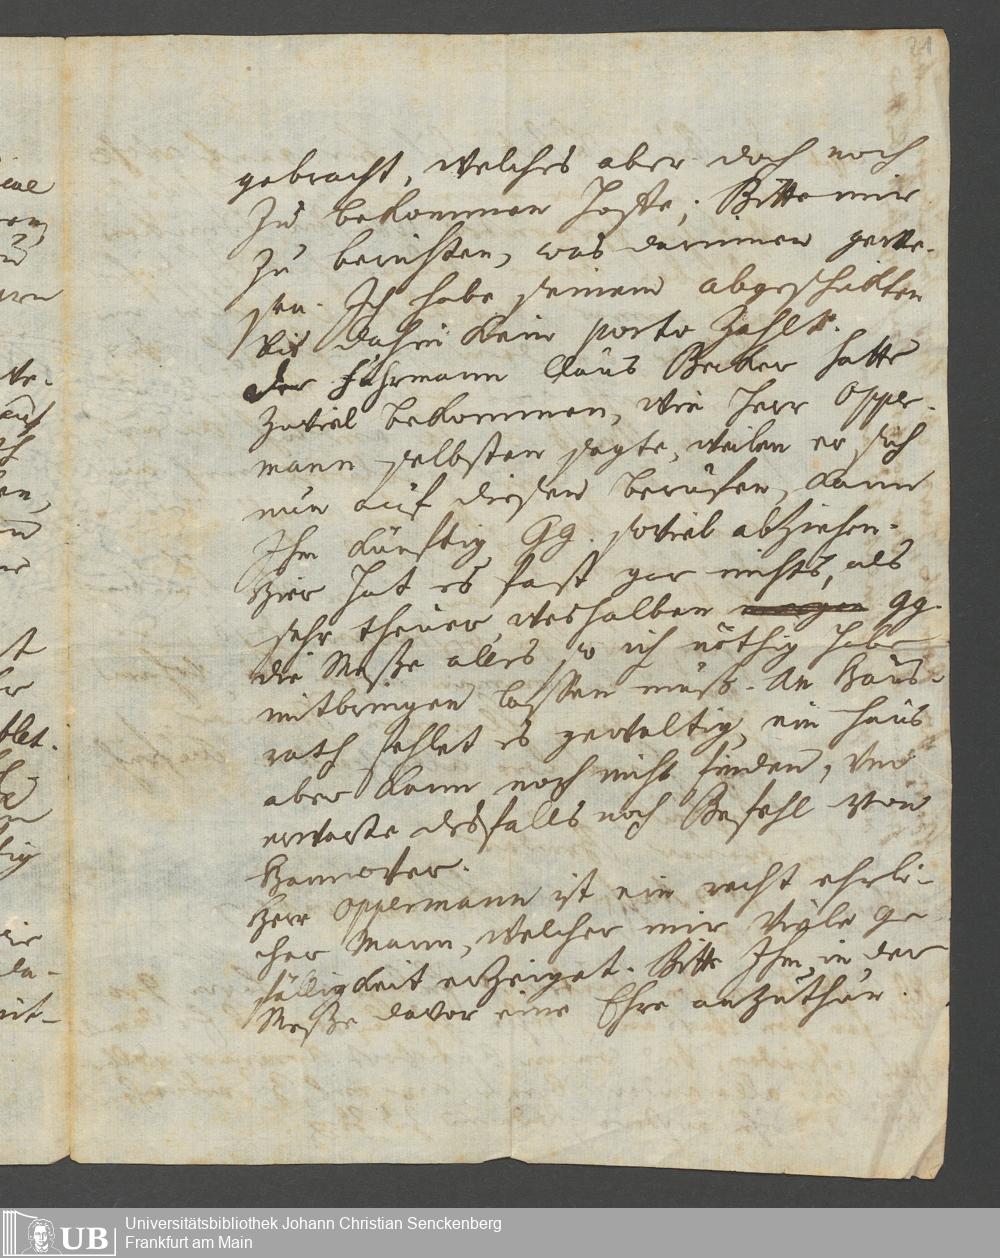 21
gebracht, welches aber doch noch
zu bekommen hoffe; Bitte mir
zu berichten, was darinnen gewe-
sen. Ich habe seinem abgeschickten
bis dahin kein porto zahlt.
der Fuhrmann Claus Becker hatte
zuviel bekommen, wie Herr Opper-
mann selbsten sagte, weilen er sich
nun auf diesen berufen, kann
Ihm künftig Gg. soviel abziehen.
Hier hat es fast gar nichts, als
sehr theuer, weshalben gg.
die Meße alles so ich nöthig habe
mitbringen lassen muß. An Haus-
rath fehlet es gewaltig, ein Haus
aber kann noch nicht finden, und
erwarte desfalls noch Befehl von
Hannover.
Herr Oppermann ist ein recht ehrli-
cher Mann, welcher mir viele Ge-
fälligkeit erzeiget. Bitte Ihm in der
Meße davor eine Ehre anzuthun.
UB Universitätsbibliothek Johann Christian Senckenberg
Frankfurt am Main